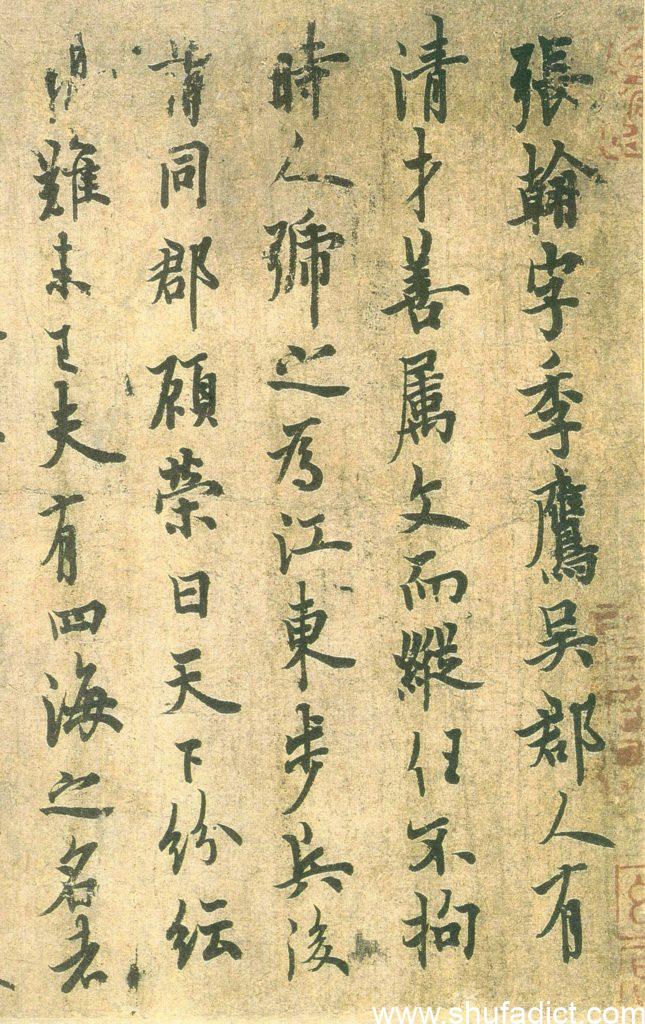 張翰字季鷹吳郡人有
清才善属文而縱任不拘
時人號之為江東步兵後
同郡顧榮曰天下紛紜
難未已夫有四海之名者
www.shufadict.com